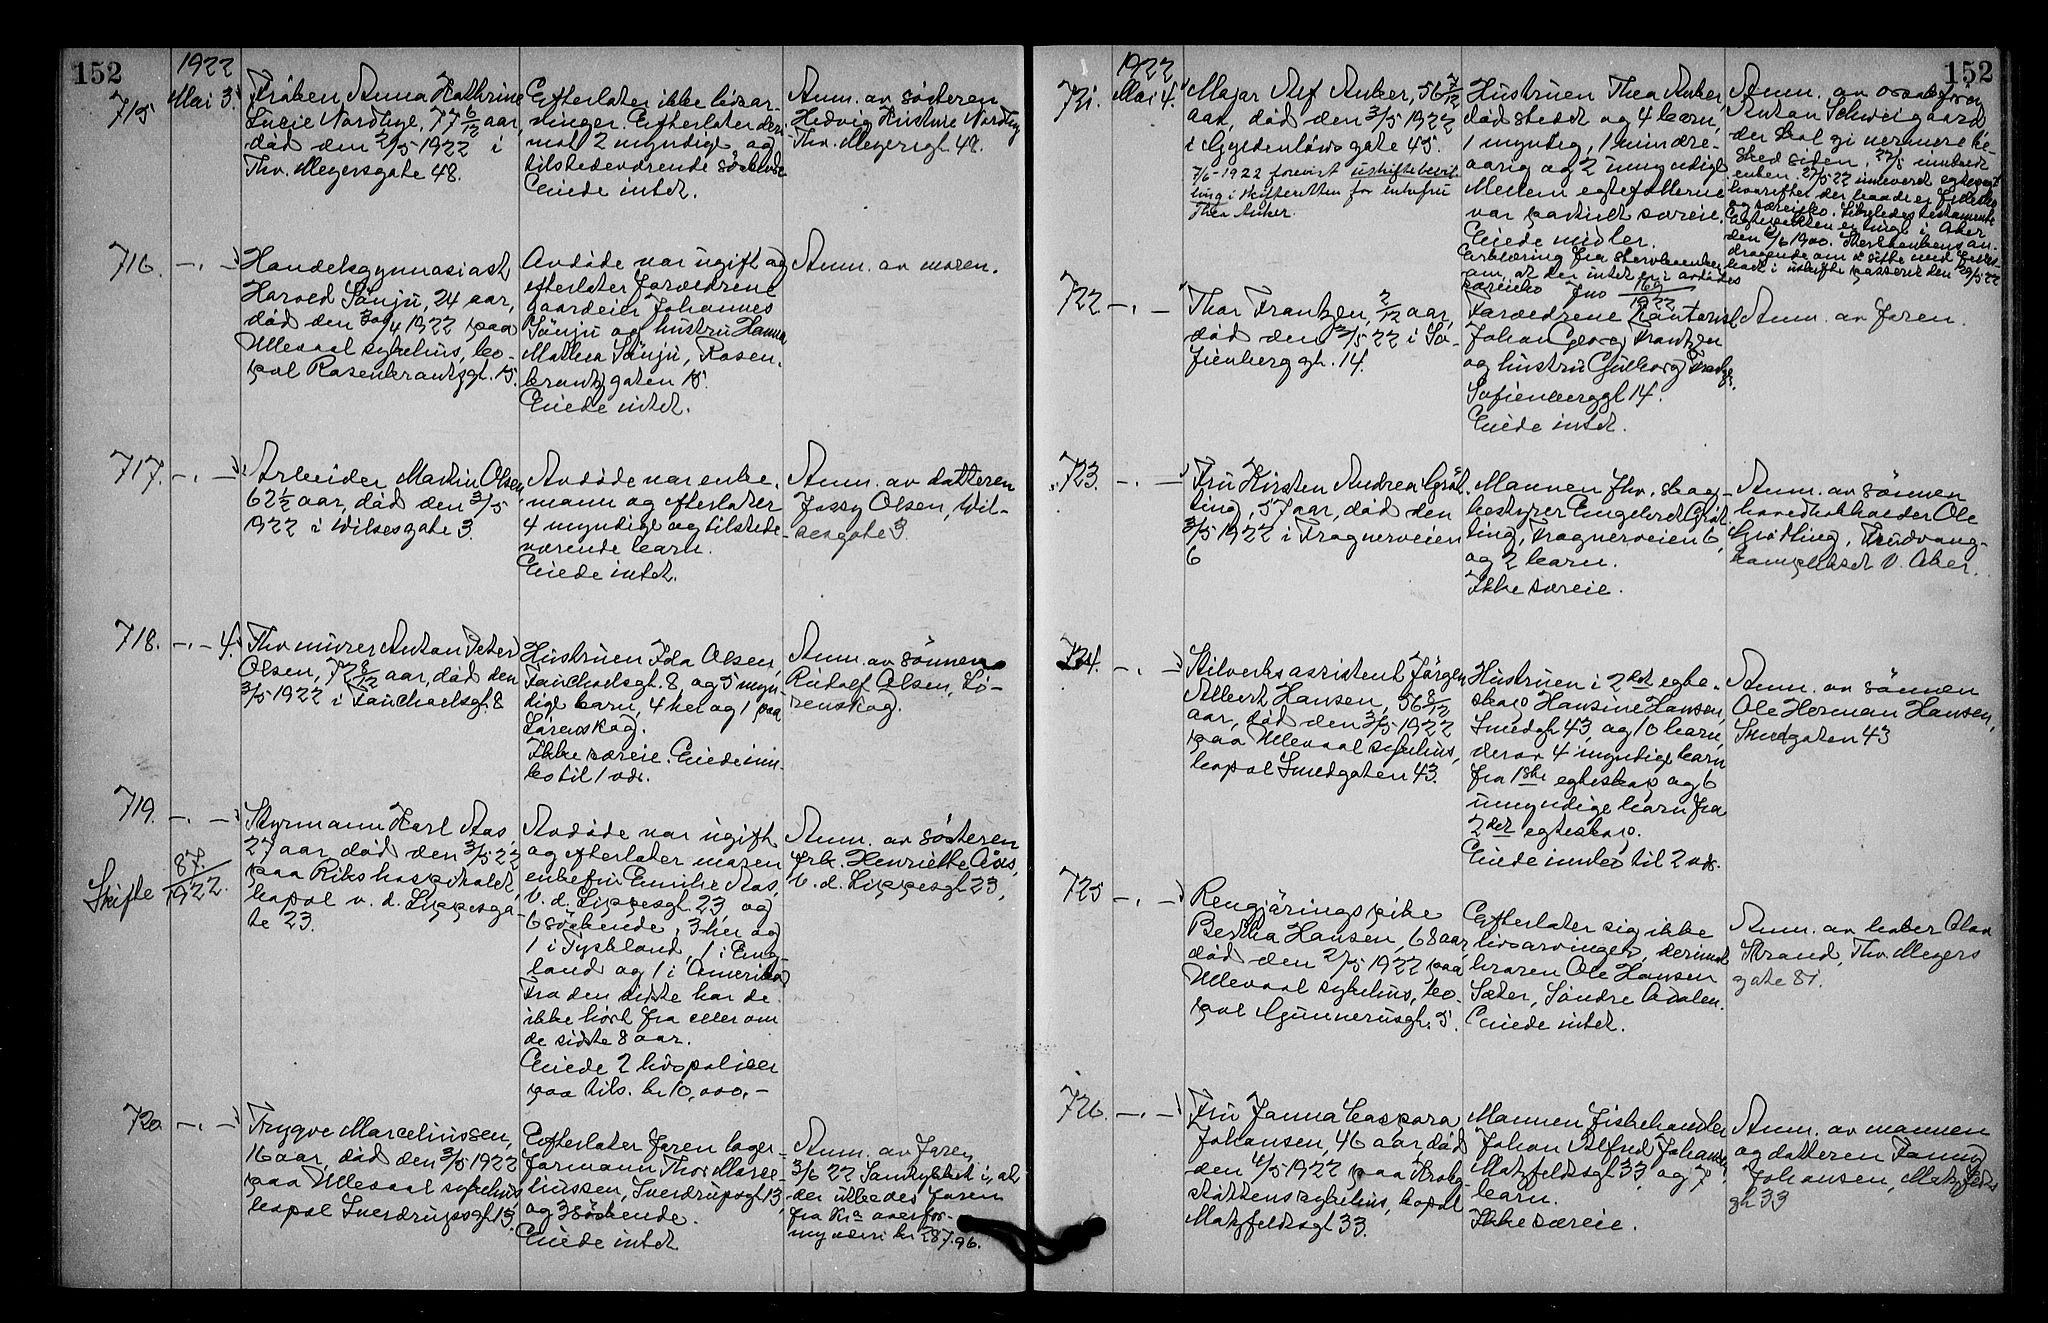 152
1922
715
Mai 3.
Frøken Anna Kathrine
Lucie Nordbye, 77 6/12 aar,
død den 2/5 1922 i
Thv. Meyersgate 48.
Efterlater ikke livsar-
vinger. Efterlater deri-
mot 2 myndige og
tilstedeværende søskende
Eiede intet.
Anm. av søsteren
Hedvig Nordbye
Thv. Meyersgt. 48.
716.
Handelsgymnasiast
Harald Sønju, 24 aar,
død den 30/4 1922 paa
Ullevaal sykehus, bo-
pæl Rosenkrantzgt. 15.
Avdøde var ugift og
efterlater forældrene
gaardeier Johannes
Sønju og hustru Hanna
Mathea Sønju, Rosen-
krantzgaten 15.
Eiede intet.
Anm. av moren.
717.
Arbeider Martin Olsen
62 1/2 aar, død den 3/5
1922 i Wilsesgate 3.
Avdøde var enke-
mann og efterlater
4 myndige og tilstede-
værende barn.
Eiede intet.
Anm. av datteren
Jossy Olsen, Wil-
sesgate 3.
718.
4.
Fhv. murer Anton Peter
Olsen, 72 8/12 aar, død den
3/5 1922 i Fauchaldsgt. 8
Hustruen Ida Olsen,
Fauchaldsgt. 8, og 5 myn-
dige barn, 4 her og 1 paa
Lørenskog.
Ikke særeie. Eiede inn-
bo til 1 vdr.
Anm. av sønnen
Rudolf Olsen, Lø-
renskog.
719.
Skifte 87/1922.
Styrmann Karl Aas,
27 aar, død den 3/5 22
paa Rikshospitalet,
bopæl v. d. Lippesga-
te 23.
Avdøde var ugift
og efterlater moren
enkefru Emilie Aas,
v. d. Lippesgt. 23, og
6 søskende, 3 her og
1 i Tyskland, 1 i Eng-
land og 1 i Amerika
Fra den siste har de
ikke hørt fra eller om
de sidste 8 aar.
Eiede 2 livspoliser
paa tils. kr 10,000.-
Anm. av søsteren
frk. Henriette Aas,
v. d. Lippesgt 23,
720.
Trygve Marceliussen,
16 aar, død den 3/5 1922
paa Ullevaal sykehus
bopæl Sverdrupsgt 13.
Efterlater faren lager-
formann Thor Marce-
liussen, Sverdrupsgt 13,
og 3 søskende.
Eiede intet
Anm. av faren
3/6 22 Samtykket i, at
der utbedes faren
fra Kra overfor-
mynderi kr 287.96.
152
1922
721.
Mai 4.
Major Alf Anker, 56 7/12
aar, død den 3/5 1922
i Gyldenløves gate 45.
7/6-1922 forevist uskiftebevil-
ling i skifteretten for enkefru
Thea Anker.
Hustruen Thea Anker,
dødstedet og 4 barn,
1 myndig, 1 mindre-
aarig og 2 umyndige
Mellem egtefællerne
var partielt særeie.
Eiede midler.
Erklæring fra sterboenken
om, at der intet er i avdødes
særeie Jno 169/1922
Anm. av
Anton Schweigaard
der skal gi nærmere be-
sked siden.
722.
Thor Frantzen, 2/12 aar,
død den 3/5 22 i So-
fienberggt. 14.
Forældrene kontorist
Johan Georg Frantzen
og hustru Gulborg Frantzen,
Sofienberggt 14.
Eiede intet.
Anm. av faren.
723.
Fru Kirsten Andrea Grøt-
ting, 57 aar, død den
3/5 1922 i Frognerveien
6
Mannen fhv. skog-
bestyrer Engebret Grøt-
ting, Frognerveien 6,
og 2 barn.
Ikke særeie.
Anm. av sønnen
hovedbokholder Ole
Grøtting, Trudvang-
komplekset V. Aker.
724.
Stilverksassistent Jørgen
Albert Hansen, 56 8/12
aar, død den 3/5 1922
paa Ullevaal sykehus,
bopæl Smedgaten 43.
Hustruen i 2det egte-
skap Hansine Hansen,
Smedgt 43, og 10 barn,
derav 4 myndige barn
fra 1ste egteskap og 6
umyndige barn fra
2det egteskap.
Eiede innbo til 2 vdr.
Anm. av sønnen
Ole Herman Hansen,
Smedgaten 43
725
Rengjøringspike
Bertha Hansen, 68 aar,
død den 2/5 1922 paa
Ullevaal sykehus, bo-
pæl Gunnerusgt. 5.
Efterlater sig ikke
livsarvinger, derimot
broren Ole Hansen
Sæter, Søndre Aadalen.
Eiede intet.
Anm. av Olav
Strand, Thv. Meyers
gate 81.
726.
Fru Janna Caspara
Johansen, 46 aar, død
den 4/5 1922 paa Krohg-
støttens sykehus, bopæl
Motzfeldtsgt 33.
Mannen fiskehandler
Johan Alfred Johansen
Motzfeldtsgt 33, og 7
barn.
Ikke særeie.
Anm. av mannen
og datteren Fanny
Johansen, Motzfeldts
gt 33